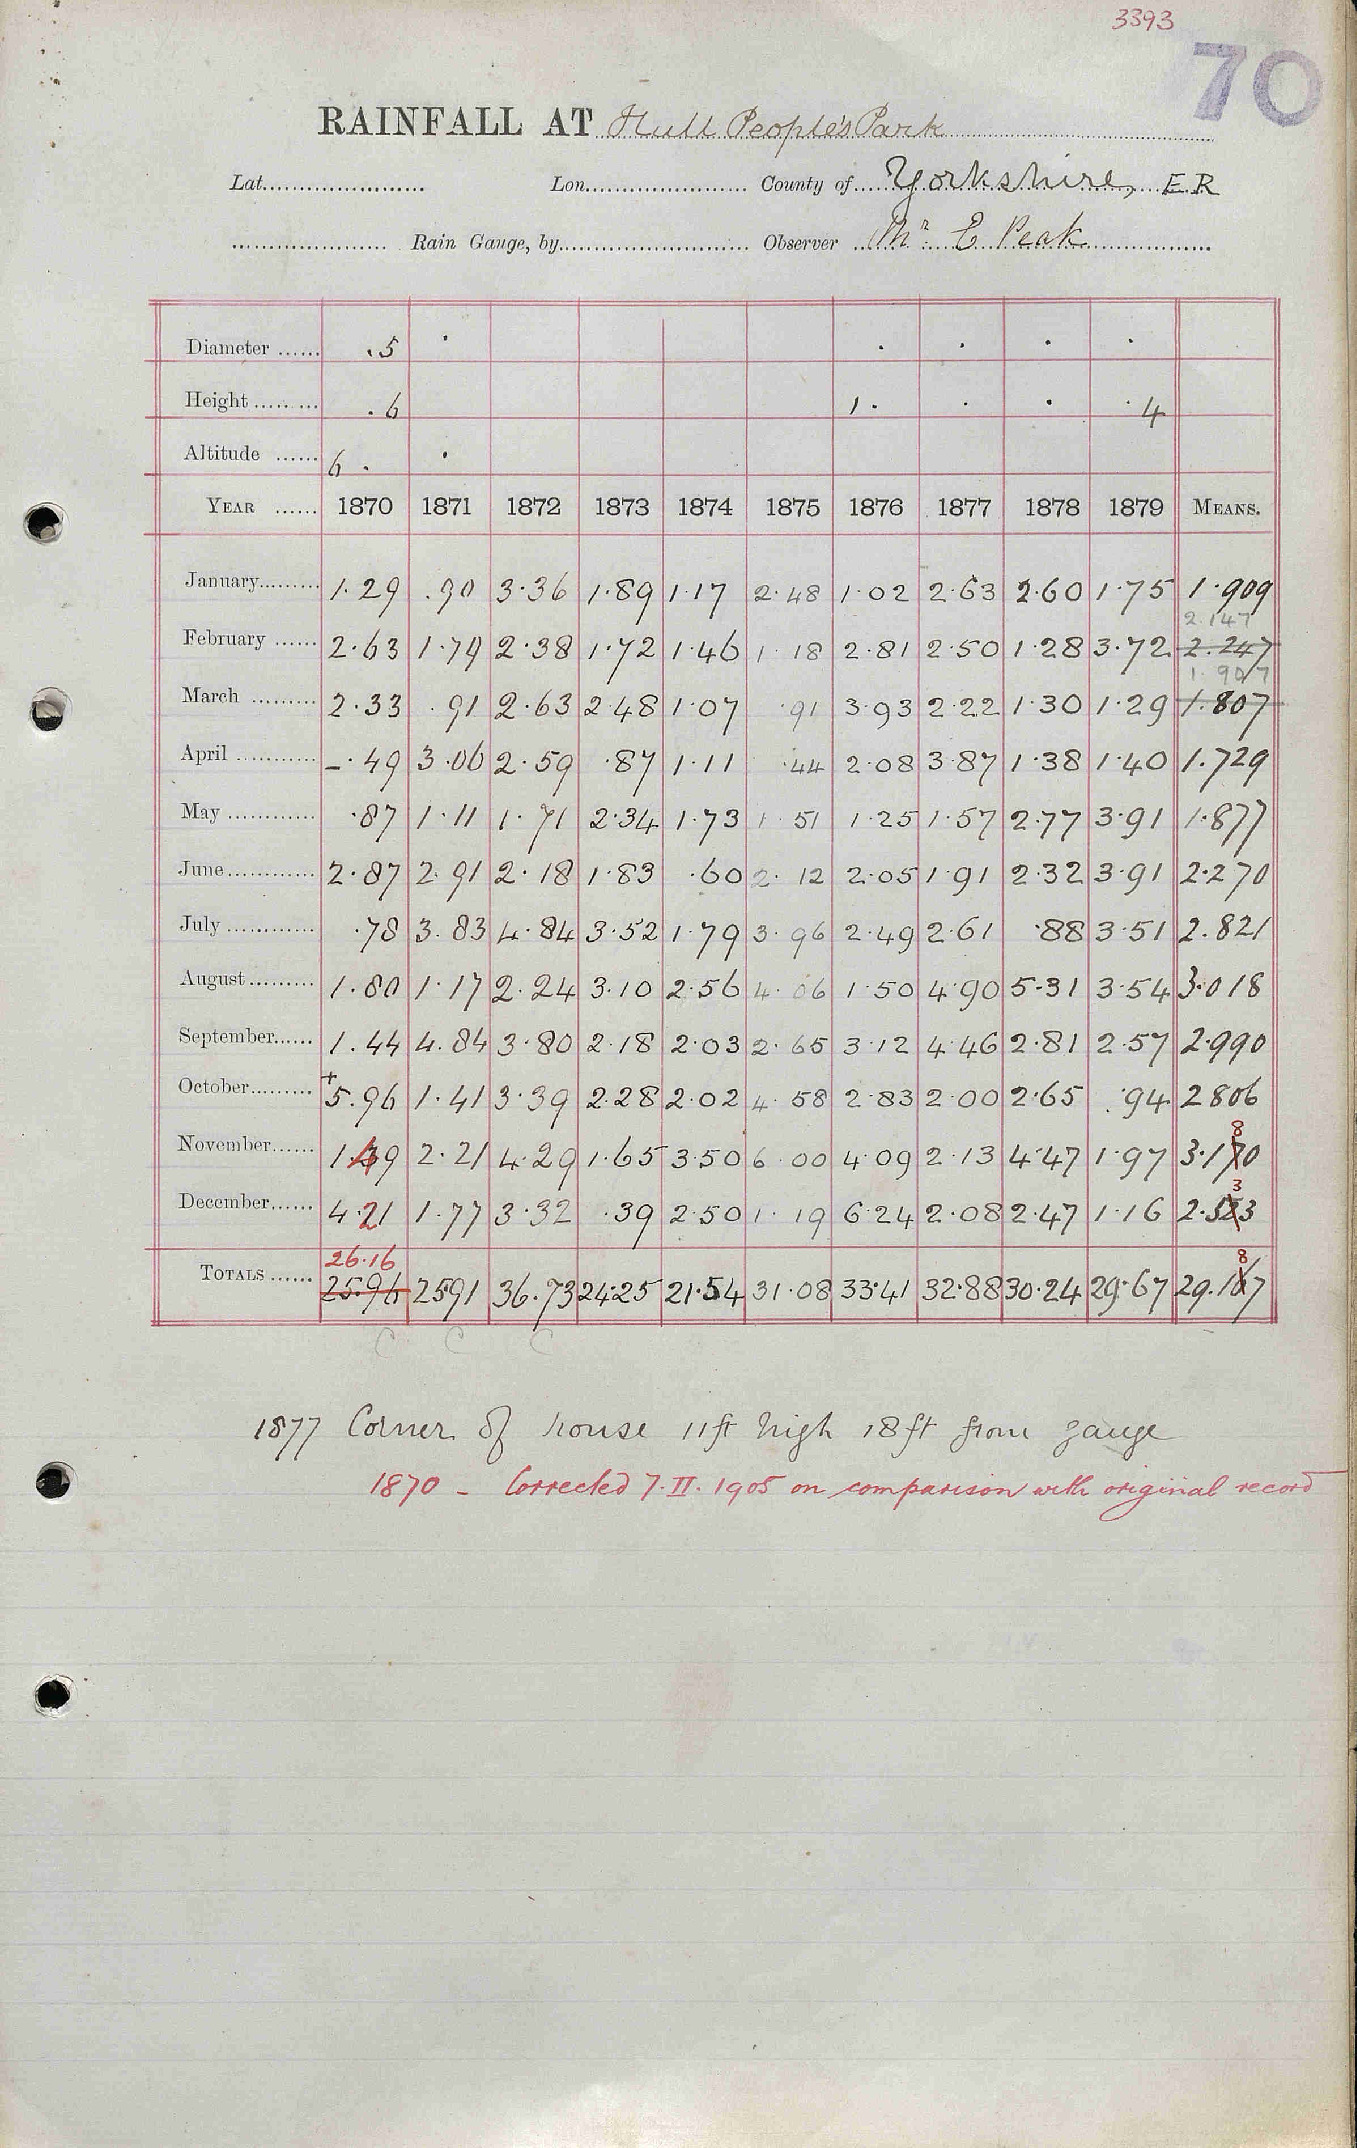 3393
70
RAINFALL AT Hull People's Park
Lat. Lon. County of Yorkshire, E R
Rain Gauge, by Observer Mr E Peak
Diameter .5
Height .6 1. 4
Altitude 6.
YEAR 1870 1871 1872 1873 1874 1875 1876 1877 1878 1879 MEANS.
January 1.29 .90 3.36 1.89 1.17 2.48 1.02 2.63 2.60 1.75 1.909
2.147
February 2.63 1.79 2.38 1.72 1.46 1.18 2.81 2.50 1.28 3.72 2.247
1.907
March 2.33 .91 2.63 2.48 1.07 .91 3.93 2.22 1.30 1.29 1.807
April -.49 3.06 2.59 .87 1.11 .44 2.08 3.87 1.38 1.40 1.729
May .87 1.11 1.71 2.34 1.73 1.51 1.25 1.57 2.77 3.91 1.877
June 2.87 2.91 2.18 1.83 .60 2.12 2.05 1.91 2.32 3.91 2.270
July .78 3.83 4.84 3.52 1.79 3.96 2.49 2.61 .88 3.51 2.821
August 1.80 1.17 2.24 3.10 2.56 4.06 1.50 4.90 5.31 3.54 3.018
September 1.44 4.84 3.80 2.18 2.03 2.65 3.12 4.46 2.81 2.57 2.990
October +5.96 1.41 3.39 2.28 2.02 4.58 2.83 2.00 2.65 .94 2806
8
November 2.21 4.29 1.65 3.50 6.00 4.09 2.13 4.47 1.97 3.170
3
December 4.21 1.77 3.32 .39 2.50 1.19 6.24 2.08 2.47 1.16
26.16 8
TOTALS 25.96 2591 36.73 24.25 21.54 31.08 33.41 32.88 30.24 29.67 29.167
C C C
1877 Corner of house 11ft high 18ft from gauge
1870 - Corrected 7.II.1905 on comparison with original record